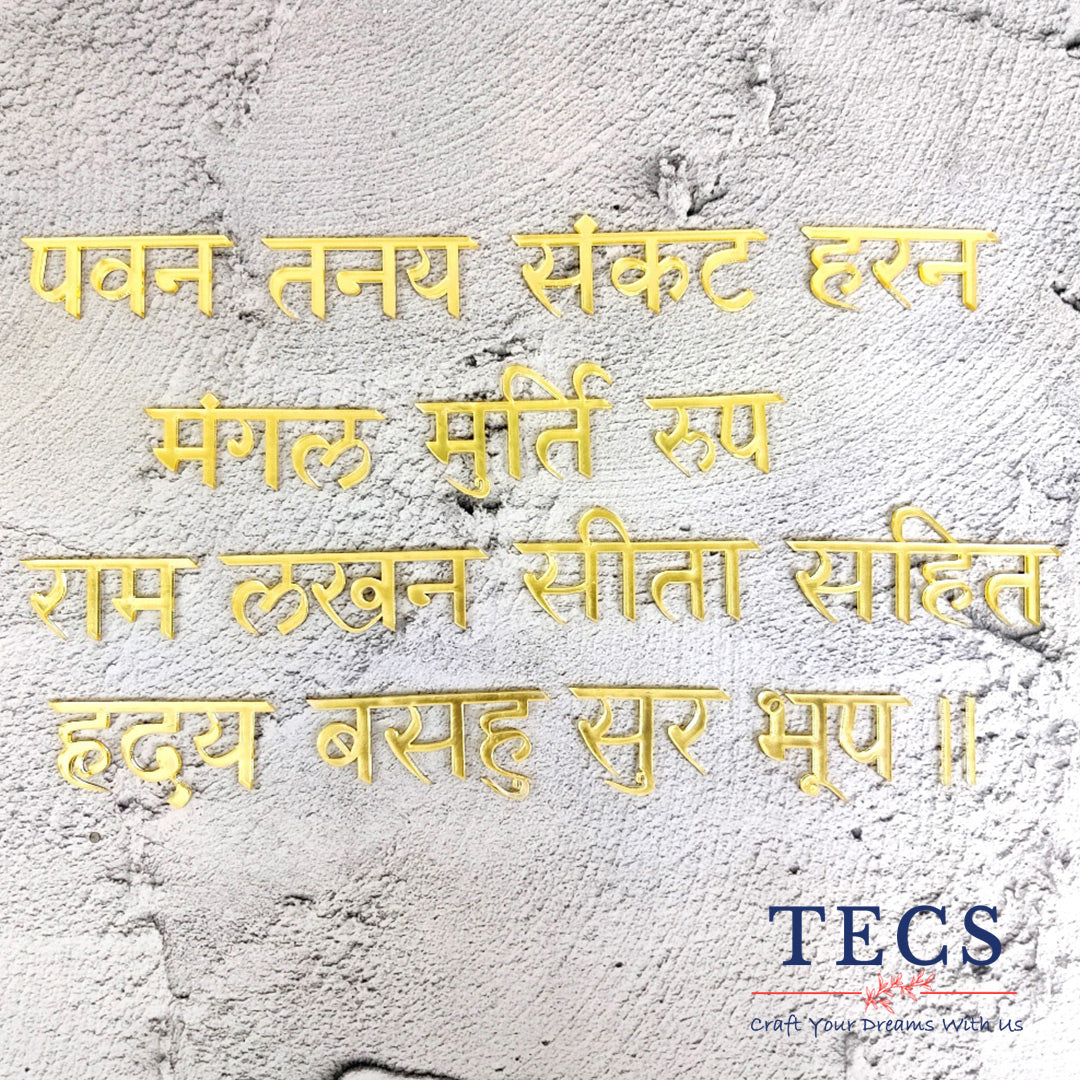 पवन तनय संकट हरन
मंगल मुर्ति रुप
राम लखन सीता सहित
हृदय बसहु सुर भूप ॥
TECS
Craft Your Dreams With Us